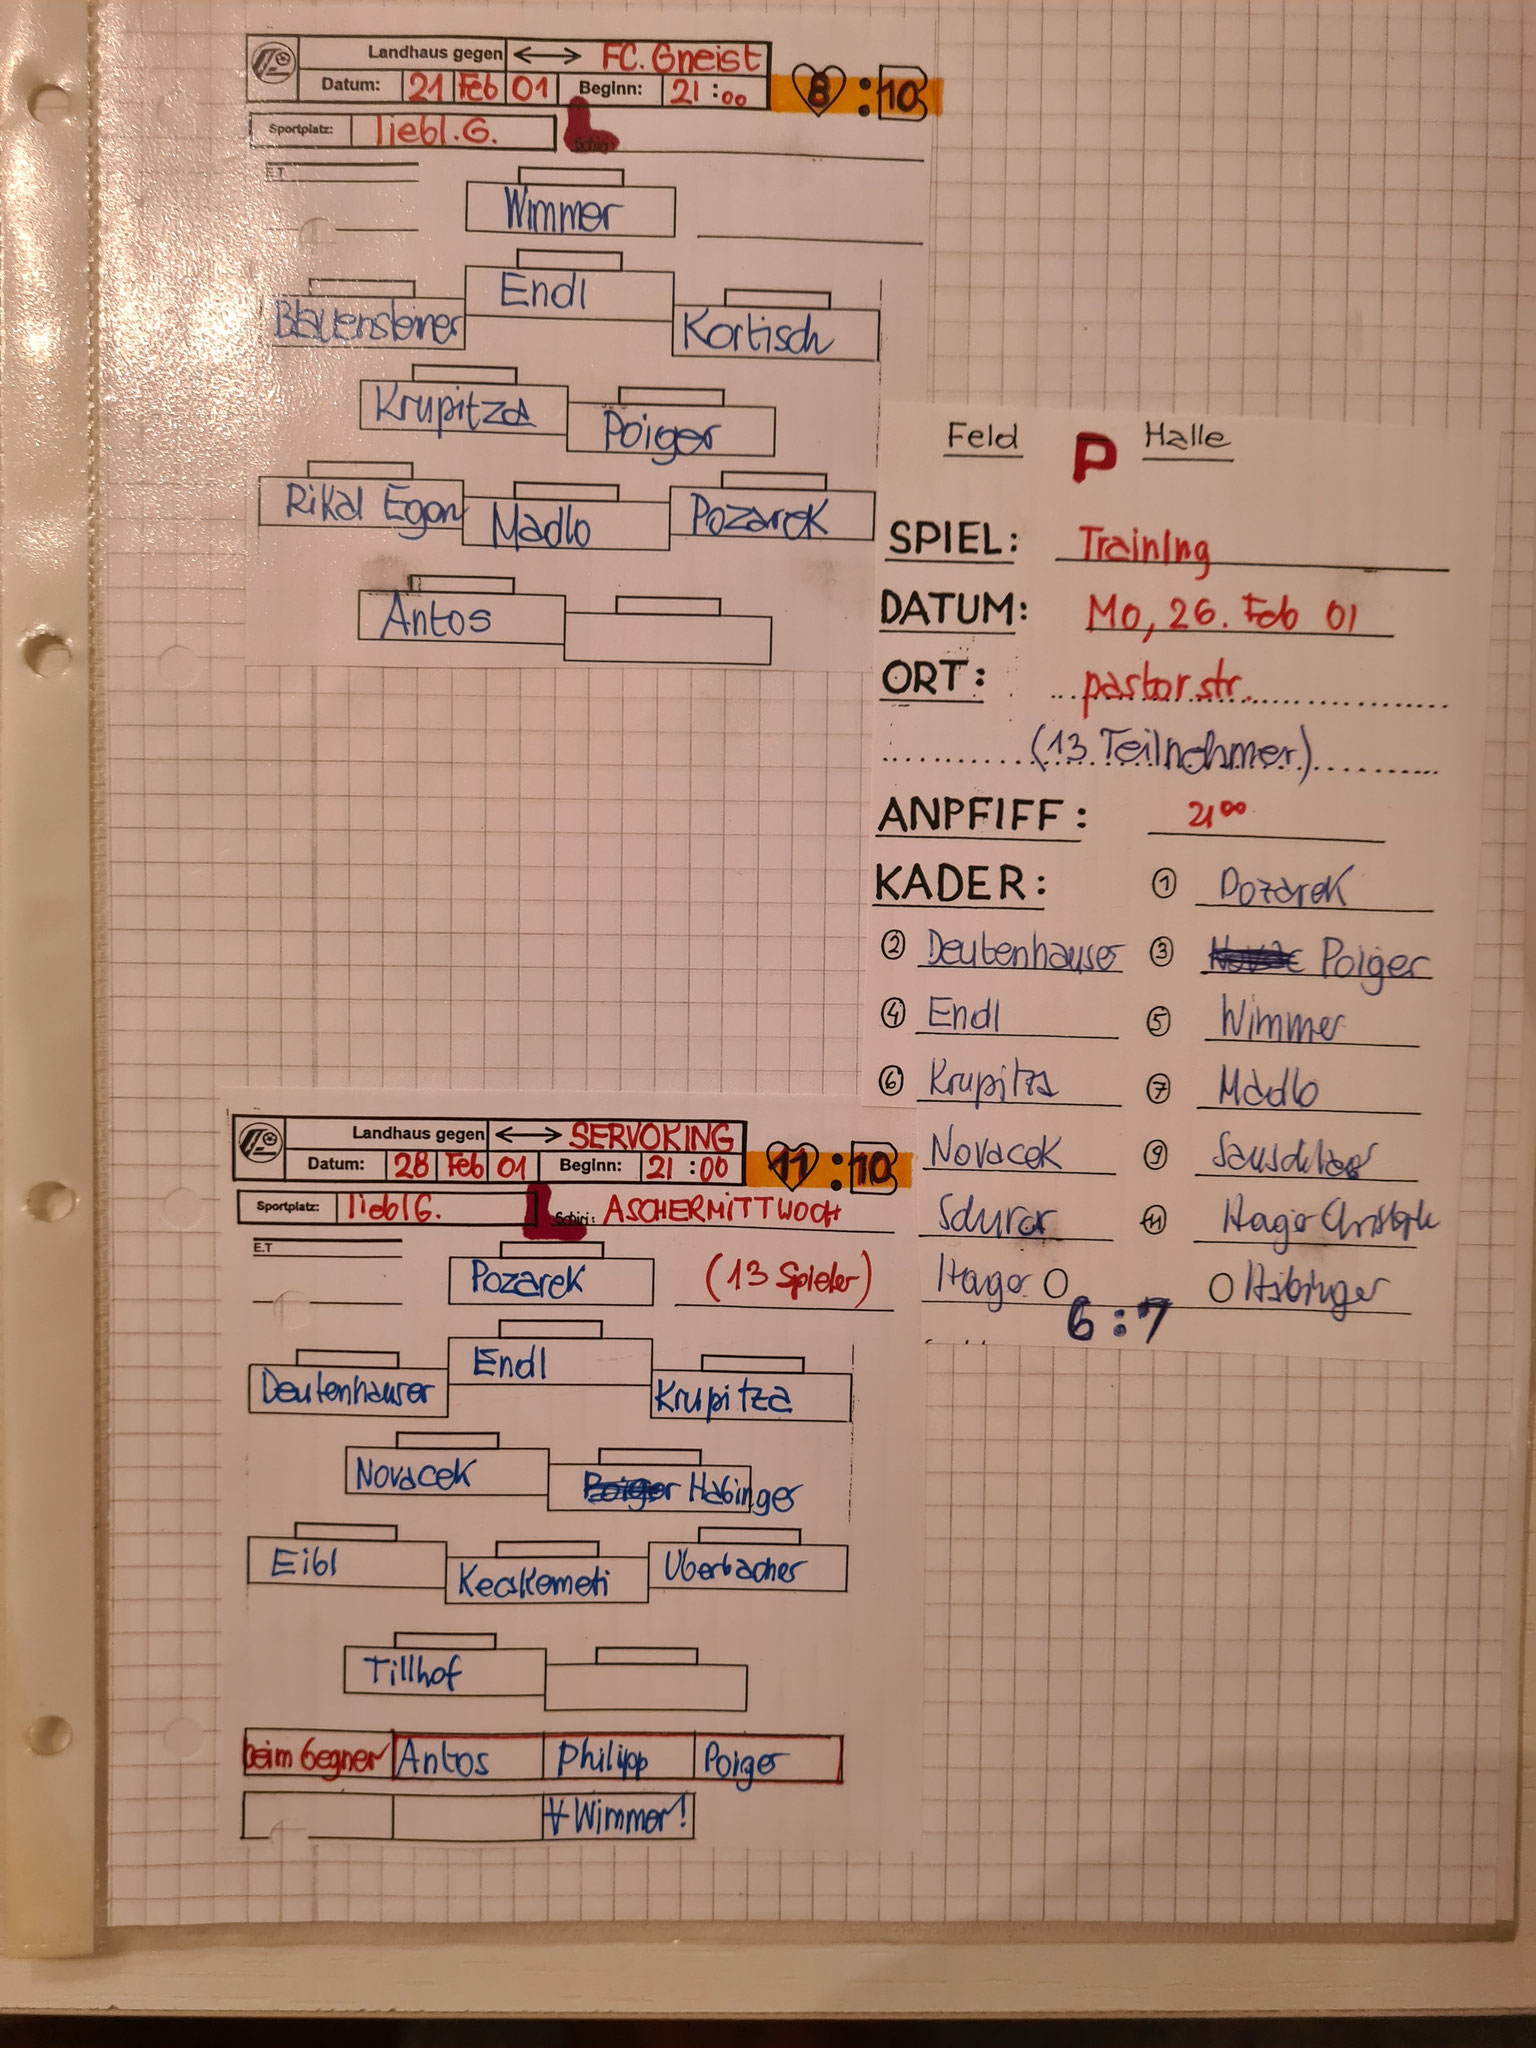 Landhaus gegen ↔ FC. Gneist
Datum: 21 Feb 01 Beginn: 21:00 8 : 10
Sportplatz: liebl.G. L Schiri:
E.T
Wimmer
Endl
Blauensteiner Kortisch
Krupitza Poiger
Rikal Egon Madlo Pozarek
Antos
Feld P Halle
SPIEL: Training
DATUM: Mo, 26. Feb 01
ORT: pastor str.
(13 Teilnehmer)
ANPFIFF: 21 00
KADER: 1 Pozarek
2 Deutenhauser 3 Novac Poiger
4 Endl 5 Wimmer
6 Krupitza 7 Madlo
Novacek 9
11 Hager Christoph
Hager O O Habinger
6:7
Landhaus gegen ↔ SERVOKING
Datum: 28 Feb 01 Beginn: 21:00 11 : 10
Sportplatz: lieblG. L Schiri: ASCHERMITTWOCH
E.T
Pozarek (13 Spieler)
Endl
Deutenhauser Krupitza
Novacek Poiger Habinger
Eibl Kecskemeti Uberbacher
Tillhof
beim Gegner Antos Philipp Poiger
+ Wimmer!